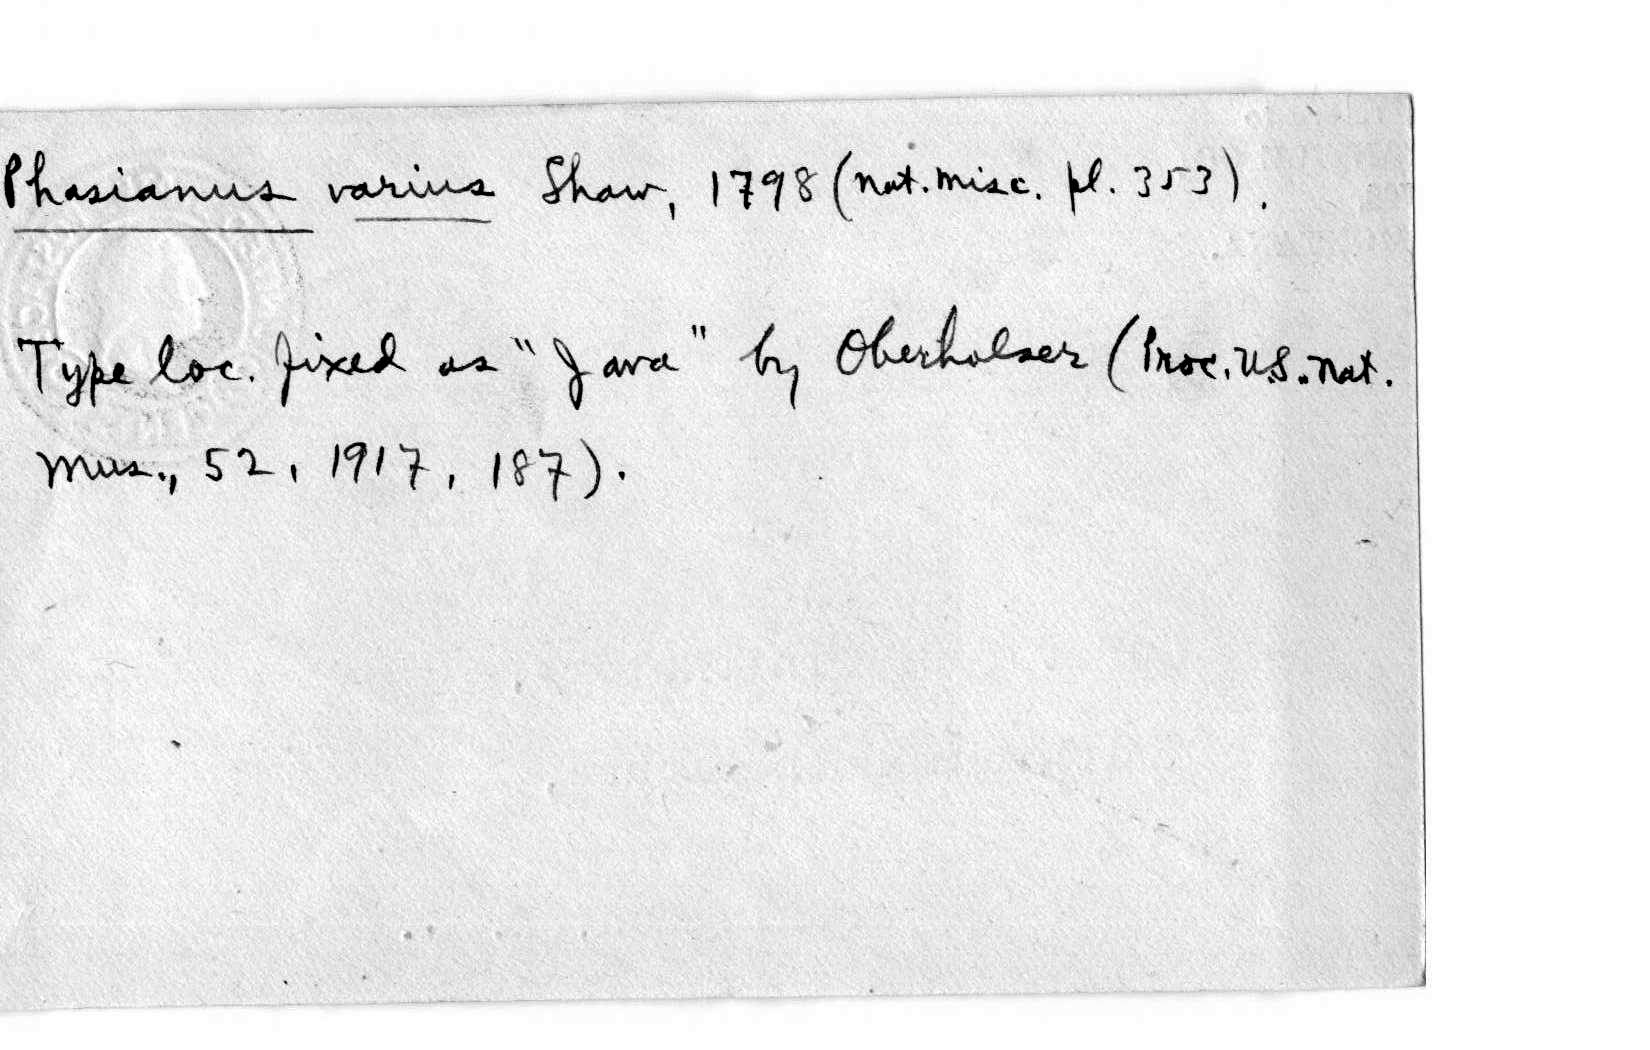 Phasianus varius Shaw, 1798 (Nat. Misc. pl. 353).
Type loc. fixed as "Java" by Oberholser (Proc. U.S. Nat.
Mus., 52, 1917, 187).